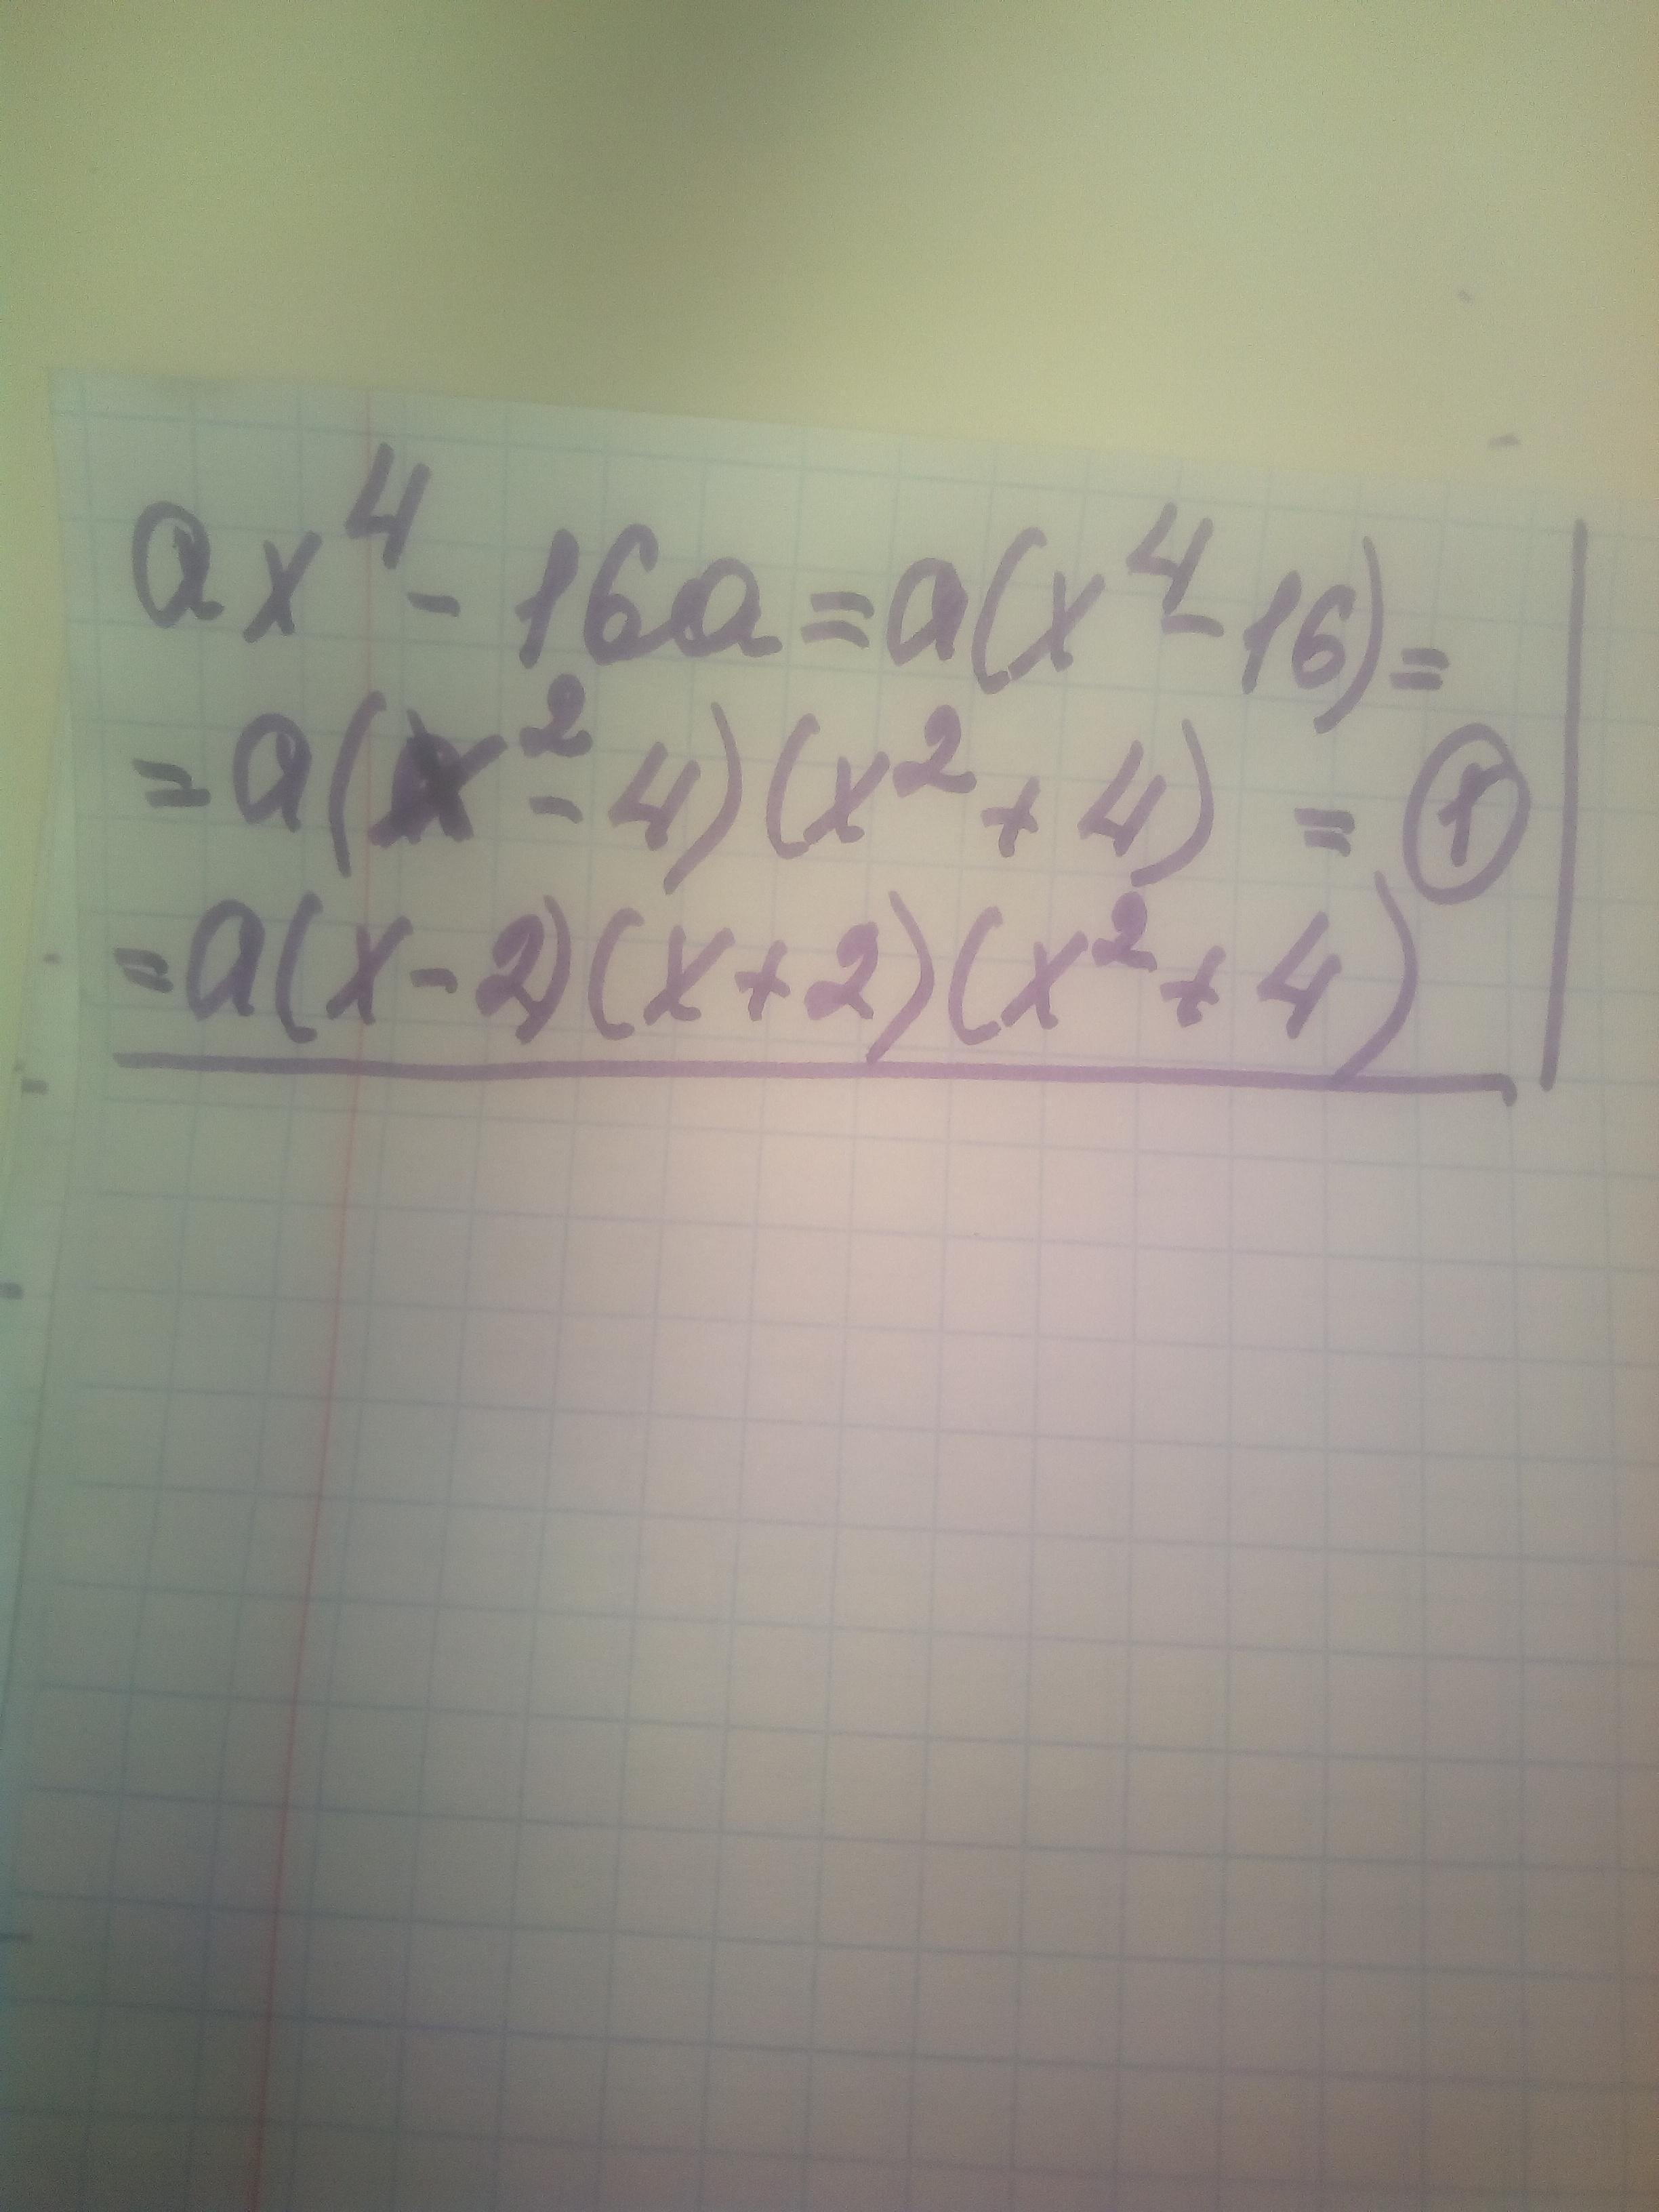 ax⁴ - 16a = a(x⁴ - 16) =
= a(x² - 4)(x² + 4) = ①
= a(x - 2)(x + 2)(x² + 4)